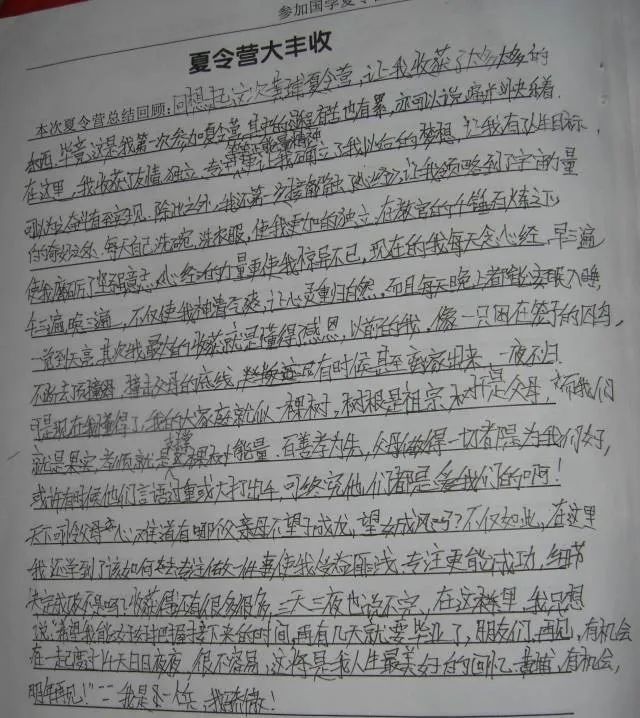 参加国学夏令
夏令营大丰收
本次夏令营总结回顾:回想起这次黄埔夏令营,让我收获了太多太多的
东西,毕竟这是我第一次参加夏令营,其中的过程有苦也有累,亦可以说痛并快乐着.
在这里,我收获了友情,独立,专注,让我确立了我以后的梦想,让我有了人生目标
可以去奋斗有至实现.除此之外,我还第一次接触心经,让我领略到了宇宙力量
的奇妙之处.每天自己洗碗,洗衣服,使我更加的独立.在教官的千锤百炼之下,
使我磨厉了坚强意志,心经的力量更使我惊异不已,现在的我每天念心经,早三遍
午三遍晚三遍,不仅使我神清气爽,让心灵重归自然,而且每天晚上都能安眠入睡,
一觉到天亮.其次我最大的收获就是懂得了感恩,以前的我,像一只困在笼子的囚鸟,
不断去顶撞,撞击父母的底线,有时候甚至离家出来,一夜不归.
可是现在我懂得了,我的大家庭就似一棵树,树根是祖宗,树干是父母,而我们
就是果实,孝何就是支撑这棵树的能量.百善孝为先,父母做得一切都是为我们好,
或许有时候他们言语过重或大打出手,可终究他们都是爱我们的啊!
天下可怜父母心,难道有哪位亲母不望子成龙,望女成凤吗?不仅如此,在这里
我还学到了该如何去专注做一件事使我受益匪浅.专注更能成功,细节
决定成败不是吗?收获得还有很多很多,三天三夜也说不完,在这里,我只想
说:"希望我能好好把握接下来的时间,再有几天就要毕业了,朋友们,再见,有机会
在一起度过个天日日夜夜,很不容易,这将是我人生最美好的回忆.黄埔,有机会,
明年再见!"——我是一个兵,我骄傲!